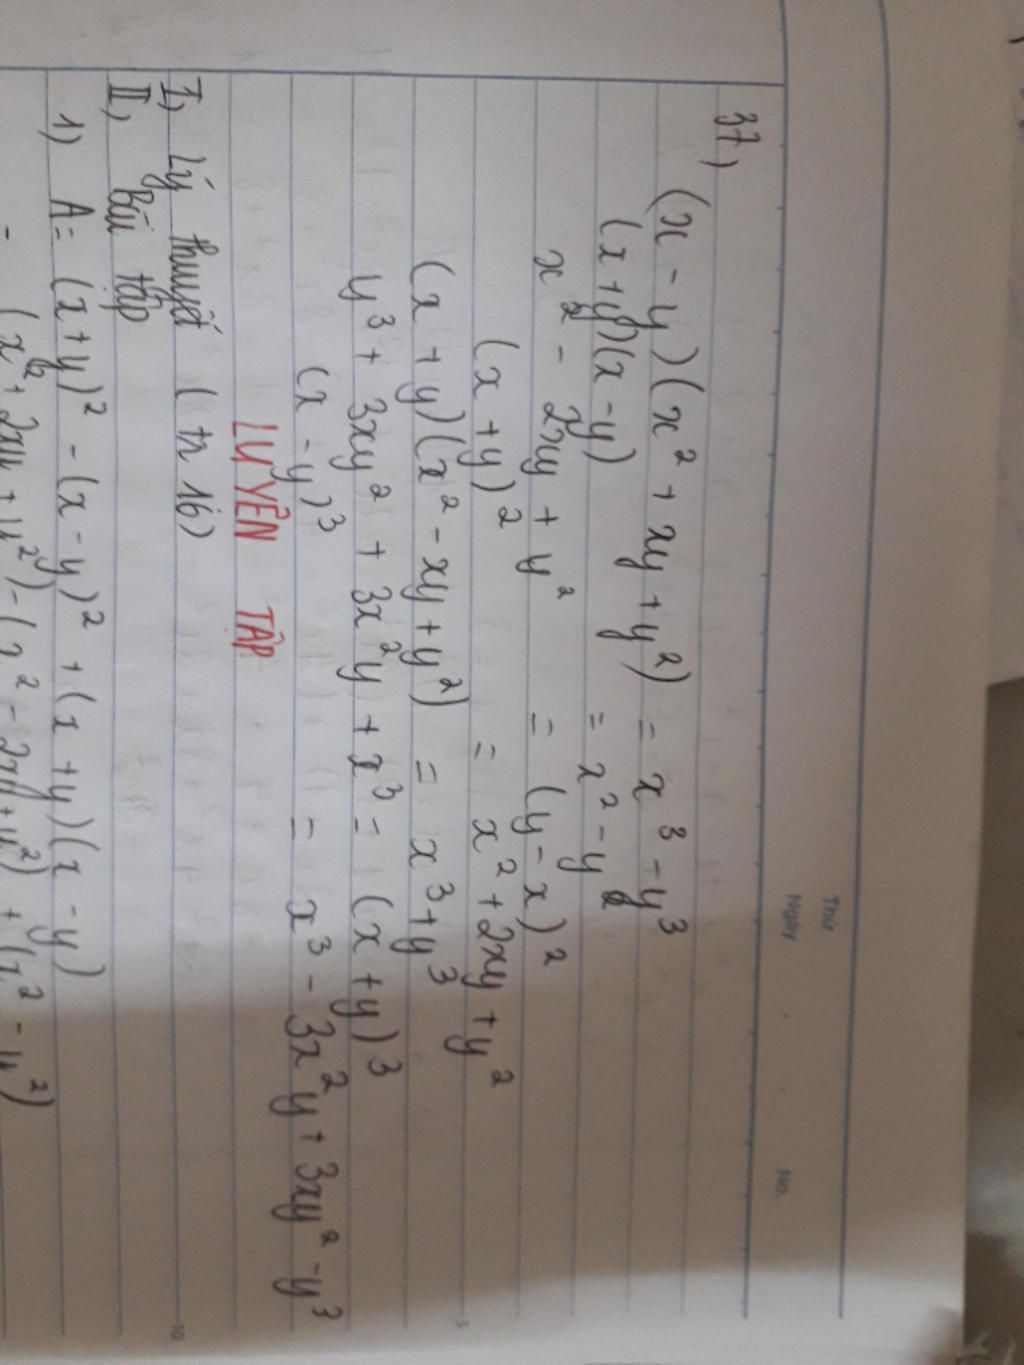 Thứ
Ngày No.
37) (x - y)(x² + xy + y²) = x³ - y³
(x + y)(x - y) = x² - y²
x² - 2xy + y² = (y - x)²
(x + y)² = x² + 2xy + y²
(x + y)(x² - xy + y²) = x³ + y³
y³ + 3xy² + 3x²y + x³ = (x + y)³
(x - y)³ = x³ - 3x²y + 3xy² - y³
LUYỆN TẬP
I, Lý thuyết (tr 16)
II, Bài tập
1) A = (x + y)² - (x - y)² + (x + y)(x - y)
= (x² + 2xy + y²) - (x² - 2xy + y²) + (x² - y²)
5
10